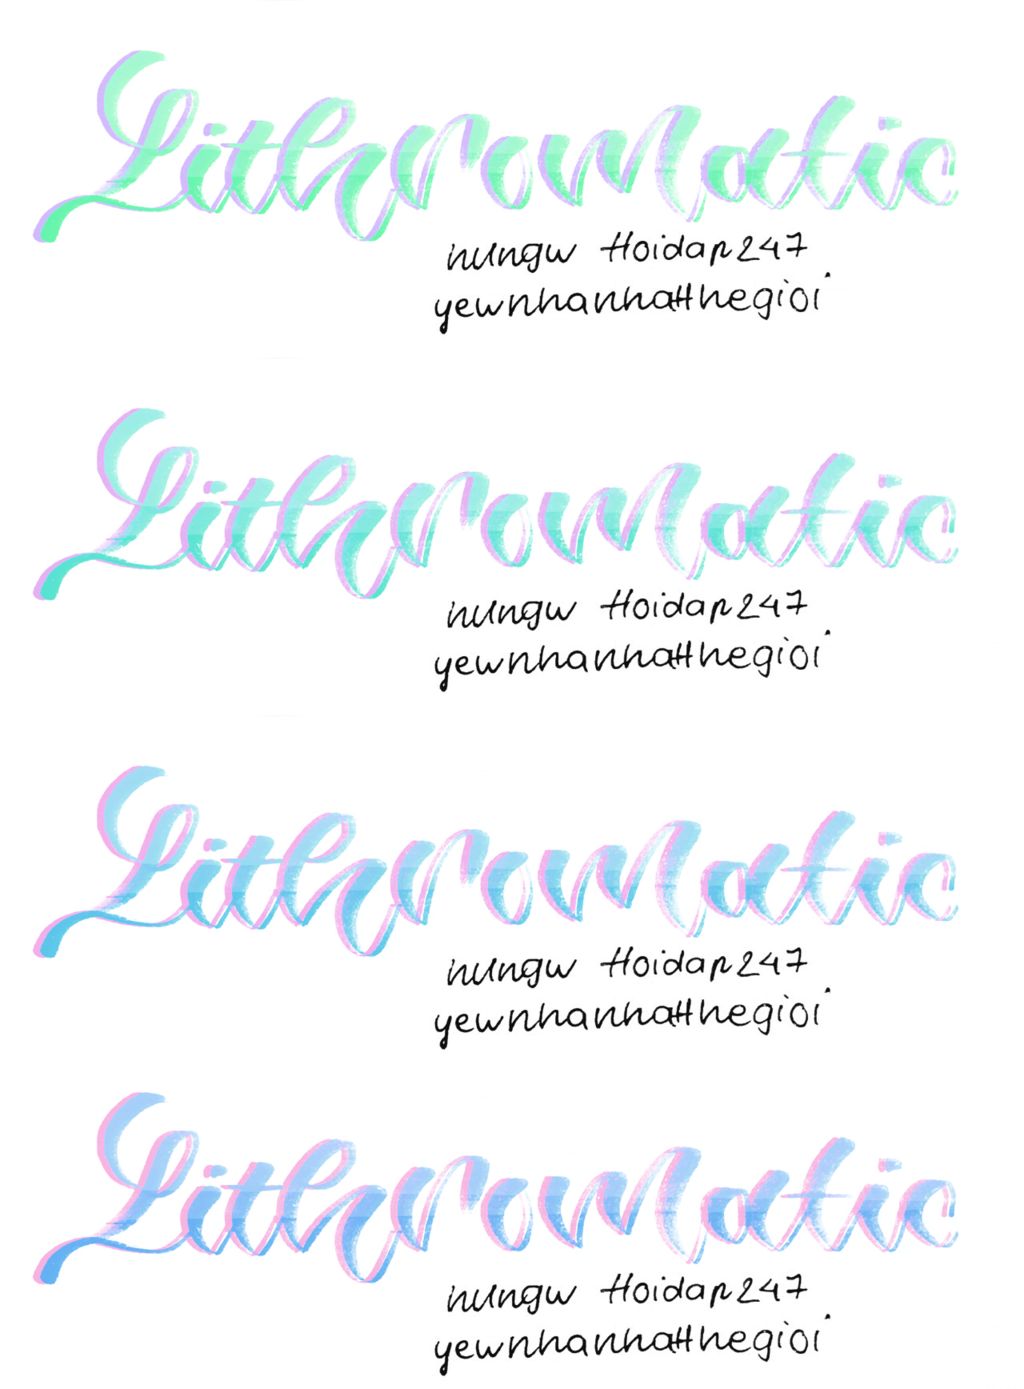 Lithromatic
nungw Hoidap247
yewnhanhatthegioi
Lithromatic
nungw Hoidap247
yewnhanhatthegioi
Lithromatic
nungw Hoidap247
yewnhanhatthegioi
Lithromatic
nungw Hoidap247
yewnhanhatthegioi